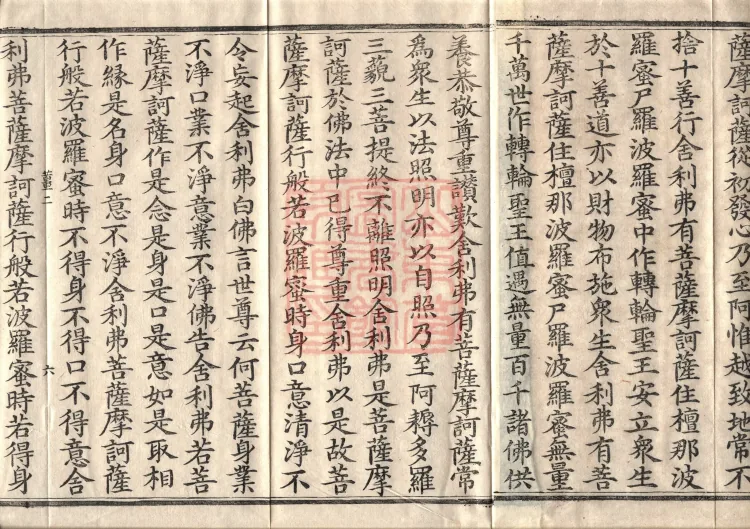 薩摩訶薩從初發心乃至阿惟越致地常不
捨十善行舍利弗有菩薩摩訶薩住檀那波
羅蜜尸羅波羅蜜中作轉輪聖王安立衆生
於十善道亦以財物布施衆生舍利弗有菩
薩摩訶薩住檀那波羅蜜尸羅波羅蜜無量
千萬世作轉輪聖王值遇無量百千諸佛供
養恭敬尊重讚歎舍利弗有菩薩摩訶薩常
爲衆生以法照明亦以自照乃至阿耨多羅
三藐三菩提終不離照明舍利弗是菩薩摩
訶薩於佛法中已得尊重舍利弗以是故菩
薩摩訶薩行般若波羅蜜時身口意清淨不
令妄起舍利弗白佛言世尊云何菩薩身業
不淨口業不淨意業不淨佛告舍利弗若菩
薩摩訶薩作是念是身是口是意如是取相
作緣是名身口意不淨舍利弗菩薩摩訶薩
行般若波羅蜜時不得身不得口不得意舍
二 六
利弗菩薩摩訶薩行般若波羅蜜時若得身